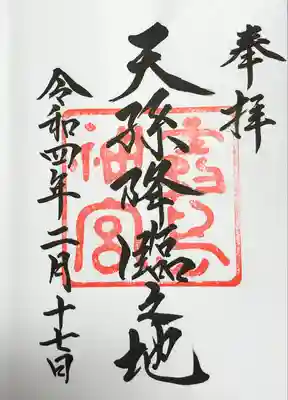 奉拝
天孫降臨之地
霧島神宮
令和四年二月十七日